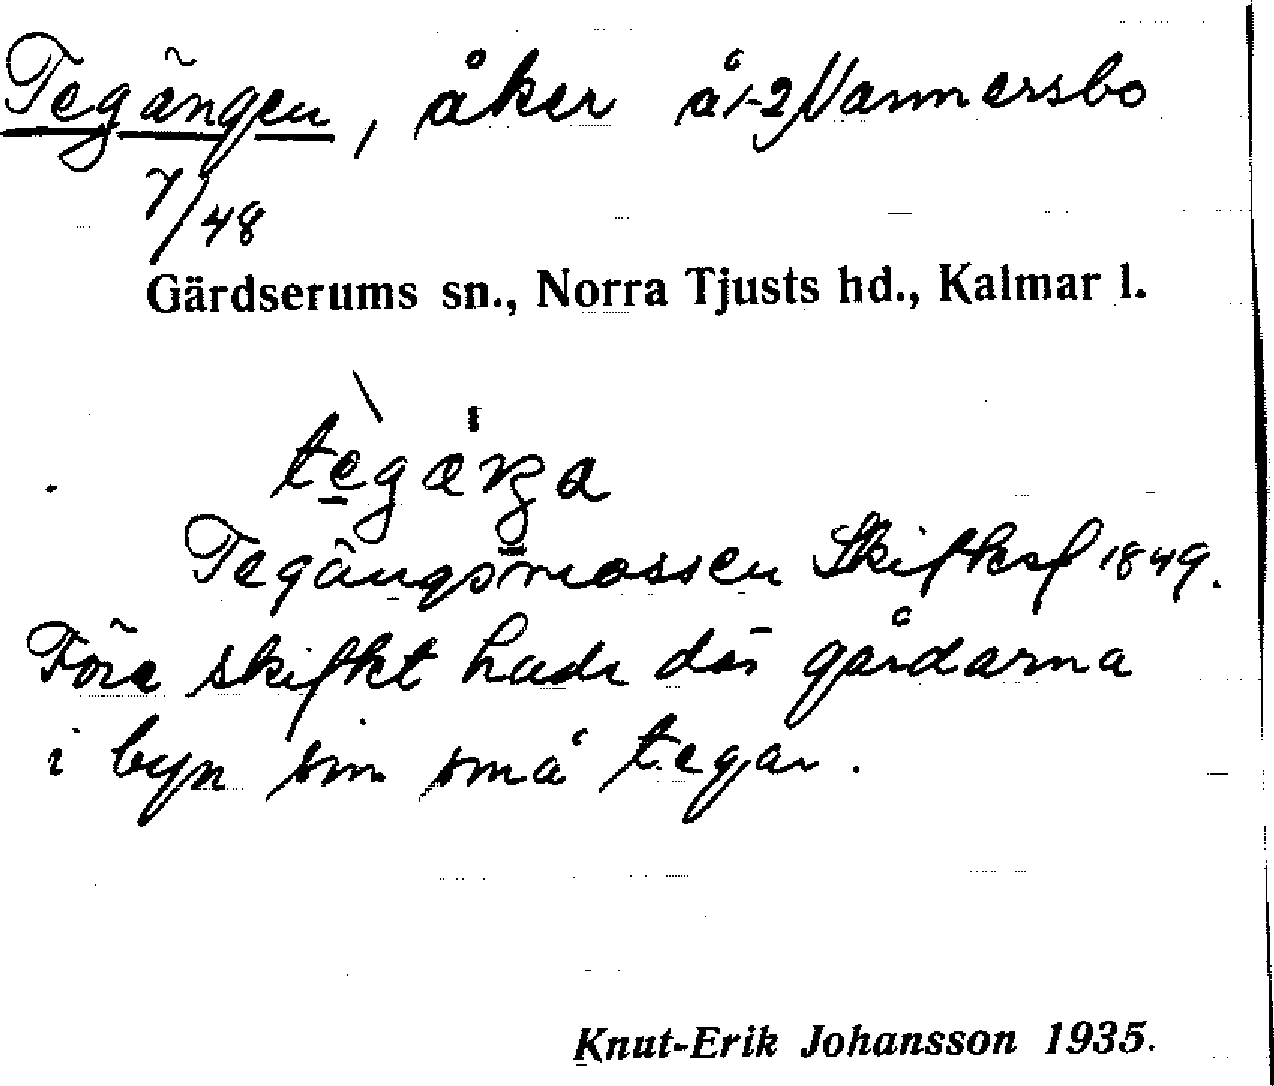 Tegängen, åker å 1-2 Vammersbo
7/48
Gärdserums sn., Norra Tjusts hd., Kalmar l.
Tegängsmossen Skifteskf 1849.
Före skiftet hade där gårdarna
i byn sin små tegar.
Knut-Erik Johansson 1935.